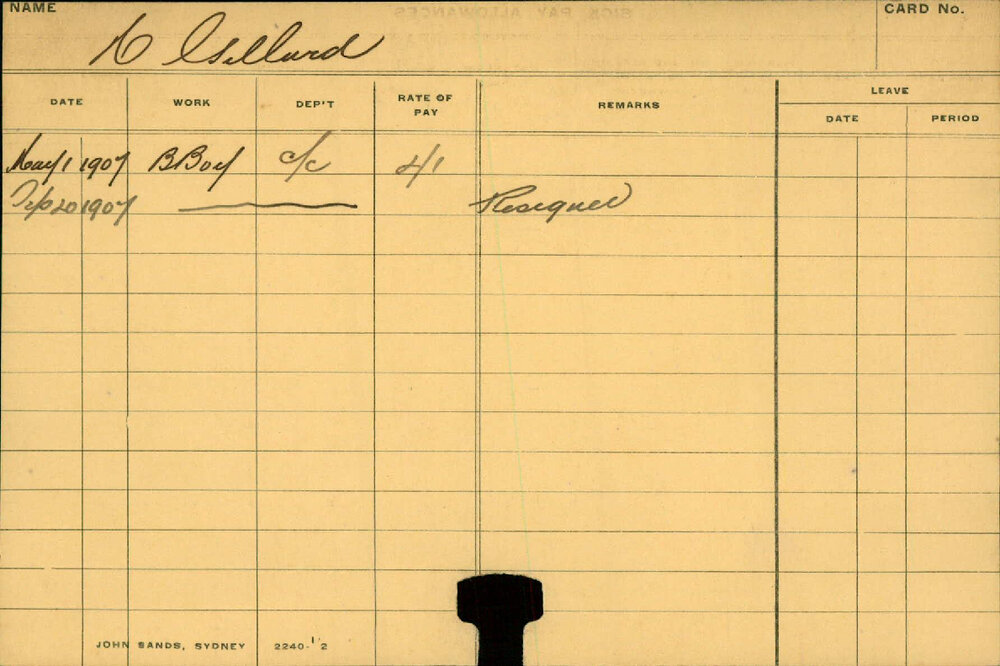 NAME CARD No.
Gillard
DATE WORK DEP'T RATE OF PAY REMARKS LEAVE
DATE PERIOD
May 1 1907 B Boy c/c 4/1
20 1907 Resigned
JOHN SANDS, SYDNEY 2240-1'2